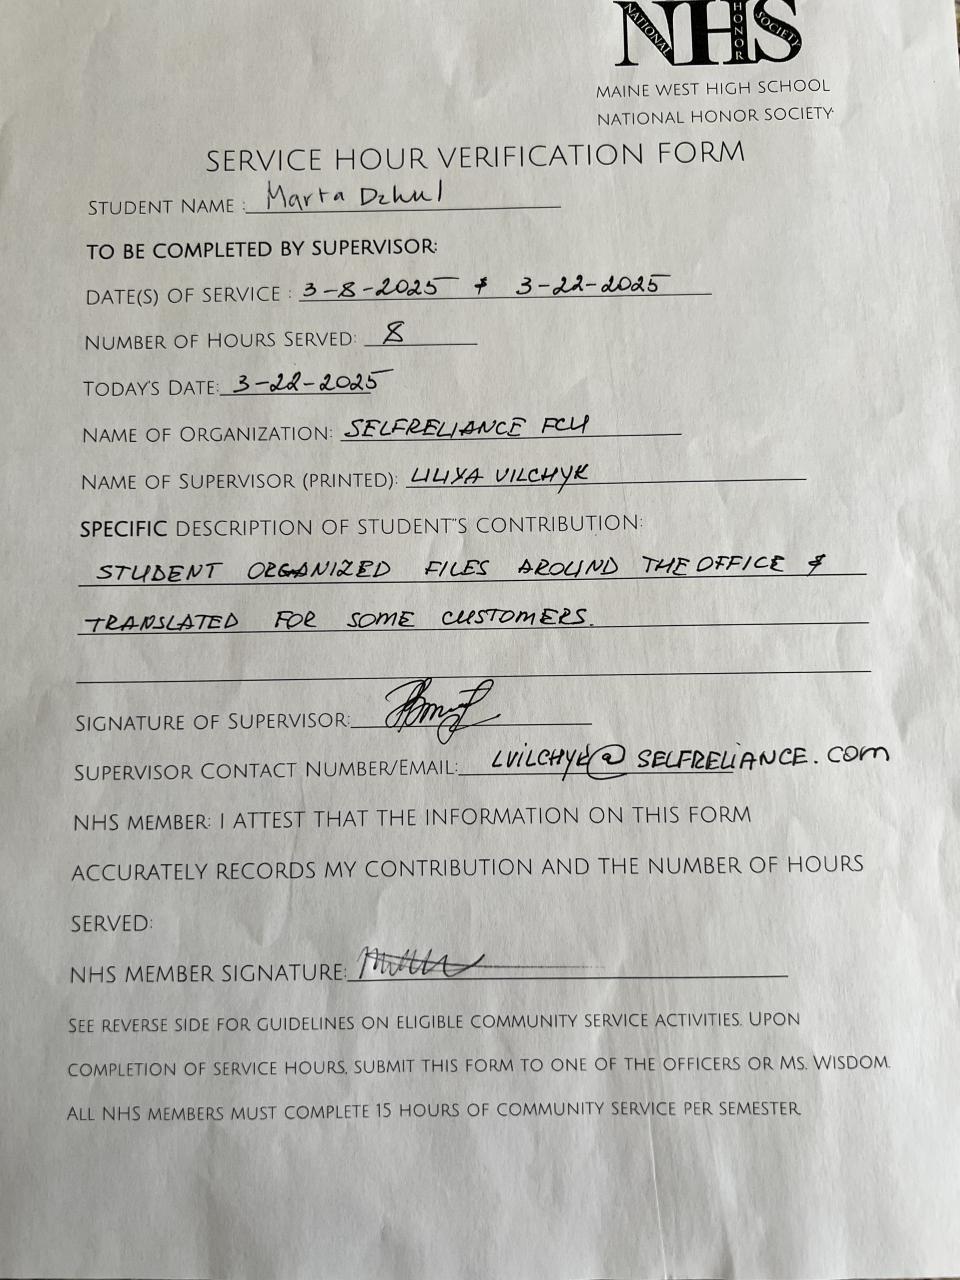 NHS
NATIONAL HONOR SOCIETY
MAINE WEST HIGH SCHOOL
NATIONAL HONOR SOCIETY
SERVICE HOUR VERIFICATION FORM
STUDENT NAME : Marta Dzhul
TO BE COMPLETED BY SUPERVISOR:
DATE(S) OF SERVICE : 3-8-2025 & 3-22-2025
NUMBER OF HOURS SERVED: 8
TODAY'S DATE: 3-22-2025
NAME OF ORGANIZATION: SELFRELIANCE FCU
NAME OF SUPERVISOR (PRINTED): LILIYA VILCHYK
SPECIFIC DESCRIPTION OF STUDENT"S CONTRIBUTION:
STUDENT ORGANIZED FILES AROUND THE OFFICE &
TRANSLATED FOR SOME CUSTOMERS.
SIGNATURE OF SUPERVISOR:
SUPERVISOR CONTACT NUMBER/EMAIL: LVILCHYK@SELFRELIANCE.COM
NHS MEMBER: I ATTEST THAT THE INFORMATION ON THIS FORM
ACCURATELY RECORDS MY CONTRIBUTION AND THE NUMBER OF HOURS
SERVED:
NHS MEMBER SIGNATURE:
SEE REVERSE SIDE FOR GUIDELINES ON ELIGIBLE COMMUNITY SERVICE ACTIVITIES. UPON
COMPLETION OF SERVICE HOURS, SUBMIT THIS FORM TO ONE OF THE OFFICERS OR MS. WISDOM.
ALL NHS MEMBERS MUST COMPLETE 15 HOURS OF COMMUNITY SERVICE PER SEMESTER.